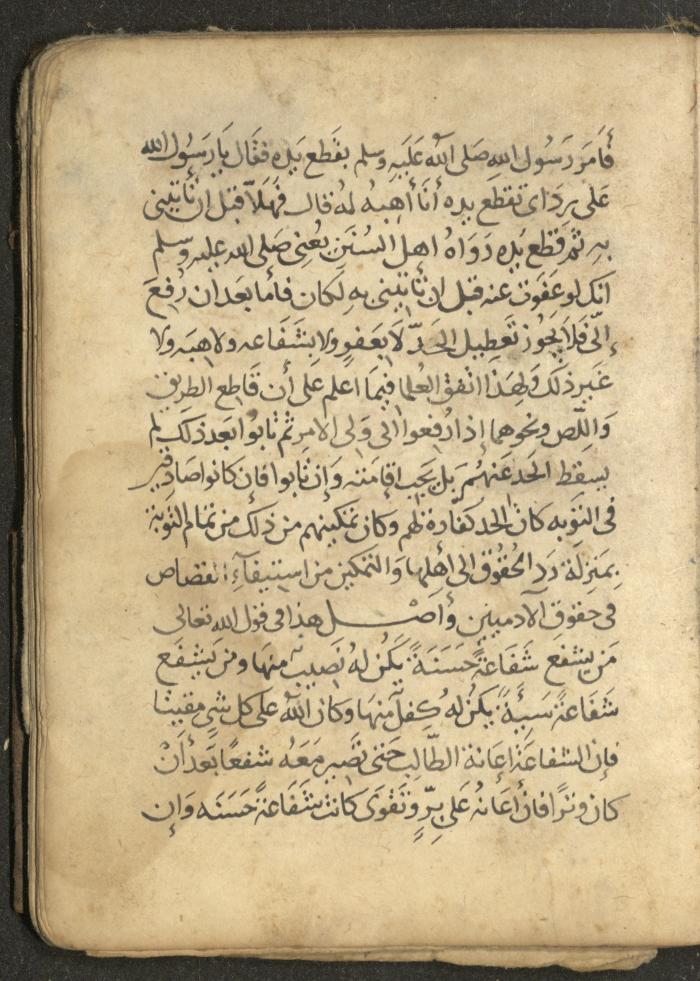 فَأمَرَ رَسُول اللهِ صَلى اللّه عَلَيهِ وسلم بقَطع يَدِه فقَال يَا رَسُول الله
عَلى رِدَاى تقطع يده أنَا أهِبهُ لهُ قال فَهَلاَّ قبل ان تأتينى
بهِ ثم قطع يَده رَوَاهُ اهل السُنَنِ يعُنى صَلى الله عليه وسلم
انك لو عَفَوت عنه قبل ان تأتينى بهِ لَكان فأما بَعدَ ان رُفعَ
إلىّ فَلاَ يجُوز تَعطيل الحَدّ لاَ بعَفوٍ ولا بشَفَاعه ولا هبَه ولا
غَير ذلكَ وَلِهَذا اتفق العُلما فيمَا اعَلم عَلى أن قَاطع الطريق
وَاللِّص ونحوهما إذا رُفعوا الى وَلى الامر ثم تابوُا بَعد ذلك لم
يسقط الحَد عَنهُم بَل يَجب اِقامَته وَإن تَابوا فإن كانوا صَادقين
فى التوَبه كانَ الحد كفّارة لهم وكان تمكينهم من ذلك من تمام التوبَة
بِمَنِزلة رَدِ الحُقُوق الى أهِلهَا وَالتمَكين من استيفَآءِ القصَاص
فى حقوقِ الآدميينِ وأصْــــل هذا فى قول الله تعالى
مَن يشفع شَفَاعَةً حَسَنَةً يَكنُ لهُ نصَيب منهَا ومن يَشفَع
شَفَاعَةً سَيئَةً يَكنُ لهُ كِفلٌ مِنهَا وكان اللّه عَلى كل شىٍ مقيتا
فإنَ الشفاعَةَ اِعَانة الطَّالِب حَتى يَصَير مَعَهُ شفعًا بَعدَ أنْ
كان وترًا فان أعَانهُ عَلى بِرٍّ وتَقوَى كانت شَفَاعَةً حَسَنَه وَإن